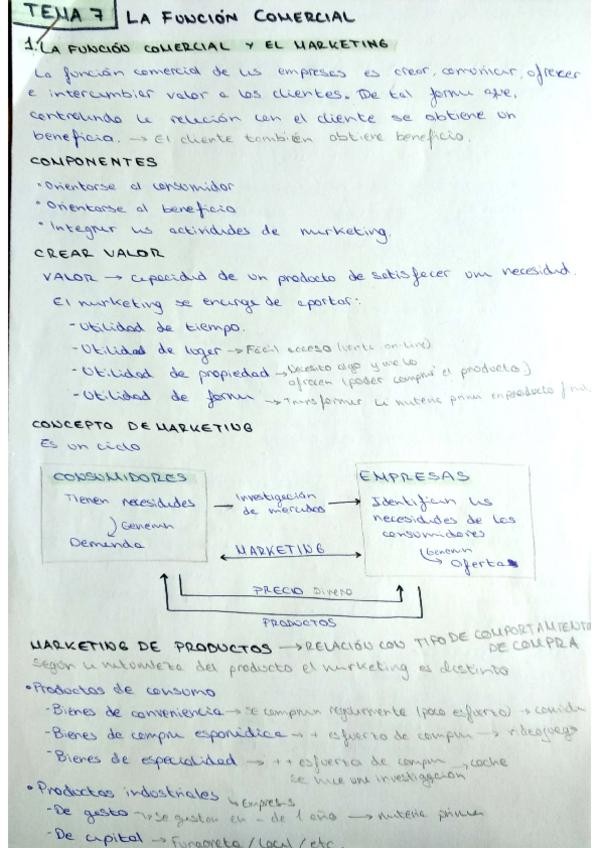 TEMA 7 LA FUNCIÓN COMERCIAL
1. LA FUNCIÓN COMERCIAL Y EL MARKETING
La función comercial de las empresas es crear, comunicar, ofrecer
e intercambiar valor a los clientes. De tal forma que,
controlando la relación con el cliente se obtiene un
beneficio. → El cliente también obtiene beneficio.
COMPONENTES
• Orientarse al consumidor
• Orientarse al beneficio
• Integrar las actividades de marketing.
CREAR VALOR
VALOR → capacidad de un producto de satisfacer una necesidad.
El marketing se encarga de aportar:
- Utilidad de tiempo.
- Utilidad de lugar → Fácil acceso (venta on-line)
- Utilidad de propiedad → Necesito algo y me lo
ofrecen (poder comprar el producto)
- Utilidad de forma → Transformar la materia prima en producto
CONCEPTO DE MARKETING
Es un ciclo
CONSUMIDORES
Tienen necesidades
Generan
Demanda
Investigación
de mercados
MARKETING
EMPRESAS
Identifican las
necesidades de los
consumidores
Generan
→ Ofertas
PRECIO Dinero
PRODUCTOS
MARKETING DE PRODUCTOS → RELACIÓN CON TIPO DE COMPORTAMIENTO
DE COMPRA
Según la naturaleza del producto el marketing es distinto
• Productos de consumo
- Bienes de conveniencia → se compran regularmente (poco esfuerzo) → comida
- Bienes de compra esporádica → + esfuerzo de compra → videojuego
- Bienes de especialidad → ++ esfuerzo de compra → coche
se hace una investigación
• Productos industriales ↳ Empresas
- De gasto → se gastan en - de 1 año → materia prima
- De capital → Furgoneta / local / etc.